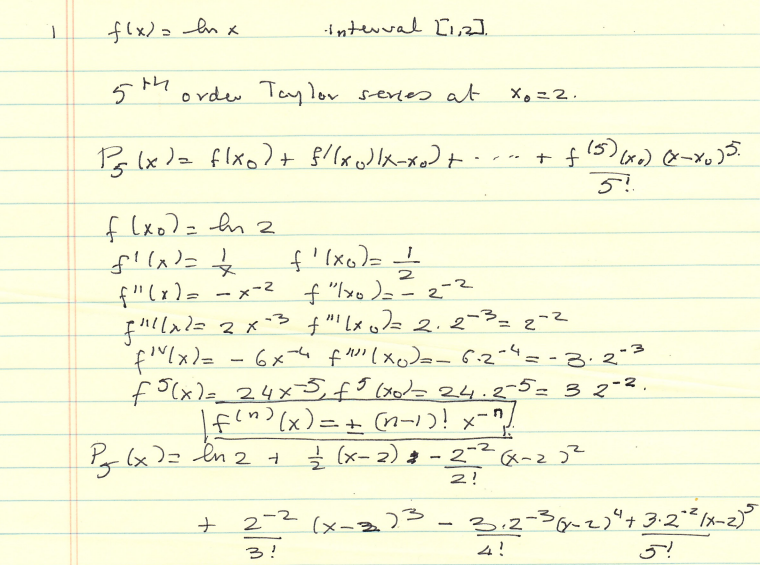 1 f(x) = ln x interval [1,2].
5th order Taylor series at x₀ = 2.
P₅(x) = f(x₀) + f'(x₀)(x-x₀) + ···· + f⁽⁵⁾(x₀)/5! (x-x₀)⁵.
f(x₀) = ln 2
f'(x) = 1/x f'(x₀) = 1/2
f''(x) = -x⁻² f''(x₀) = -2⁻²
f'''(x) = 2x⁻³ f'''(x₀) = 2·2⁻³ = 2⁻²
fᴵⱽ(x) = -6x⁻⁴ f''''(x₀) = -6·2⁻⁴ = -3·2⁻³
f⁵(x) = 24x⁻⁵, f⁵(x₀) = 24·2⁻⁵ = 3 2⁻².
f⁽ⁿ⁾(x) = ± (n-1)! x⁻ⁿ.
P₅(x) = ln 2 + 1/2 (x-2) - 2⁻²/2! (x-2)²
+ 2⁻²/3! (x-2)³ - 3·2⁻³/4! (x-2)⁴ + 3·2⁻²/5! (x-2)⁵